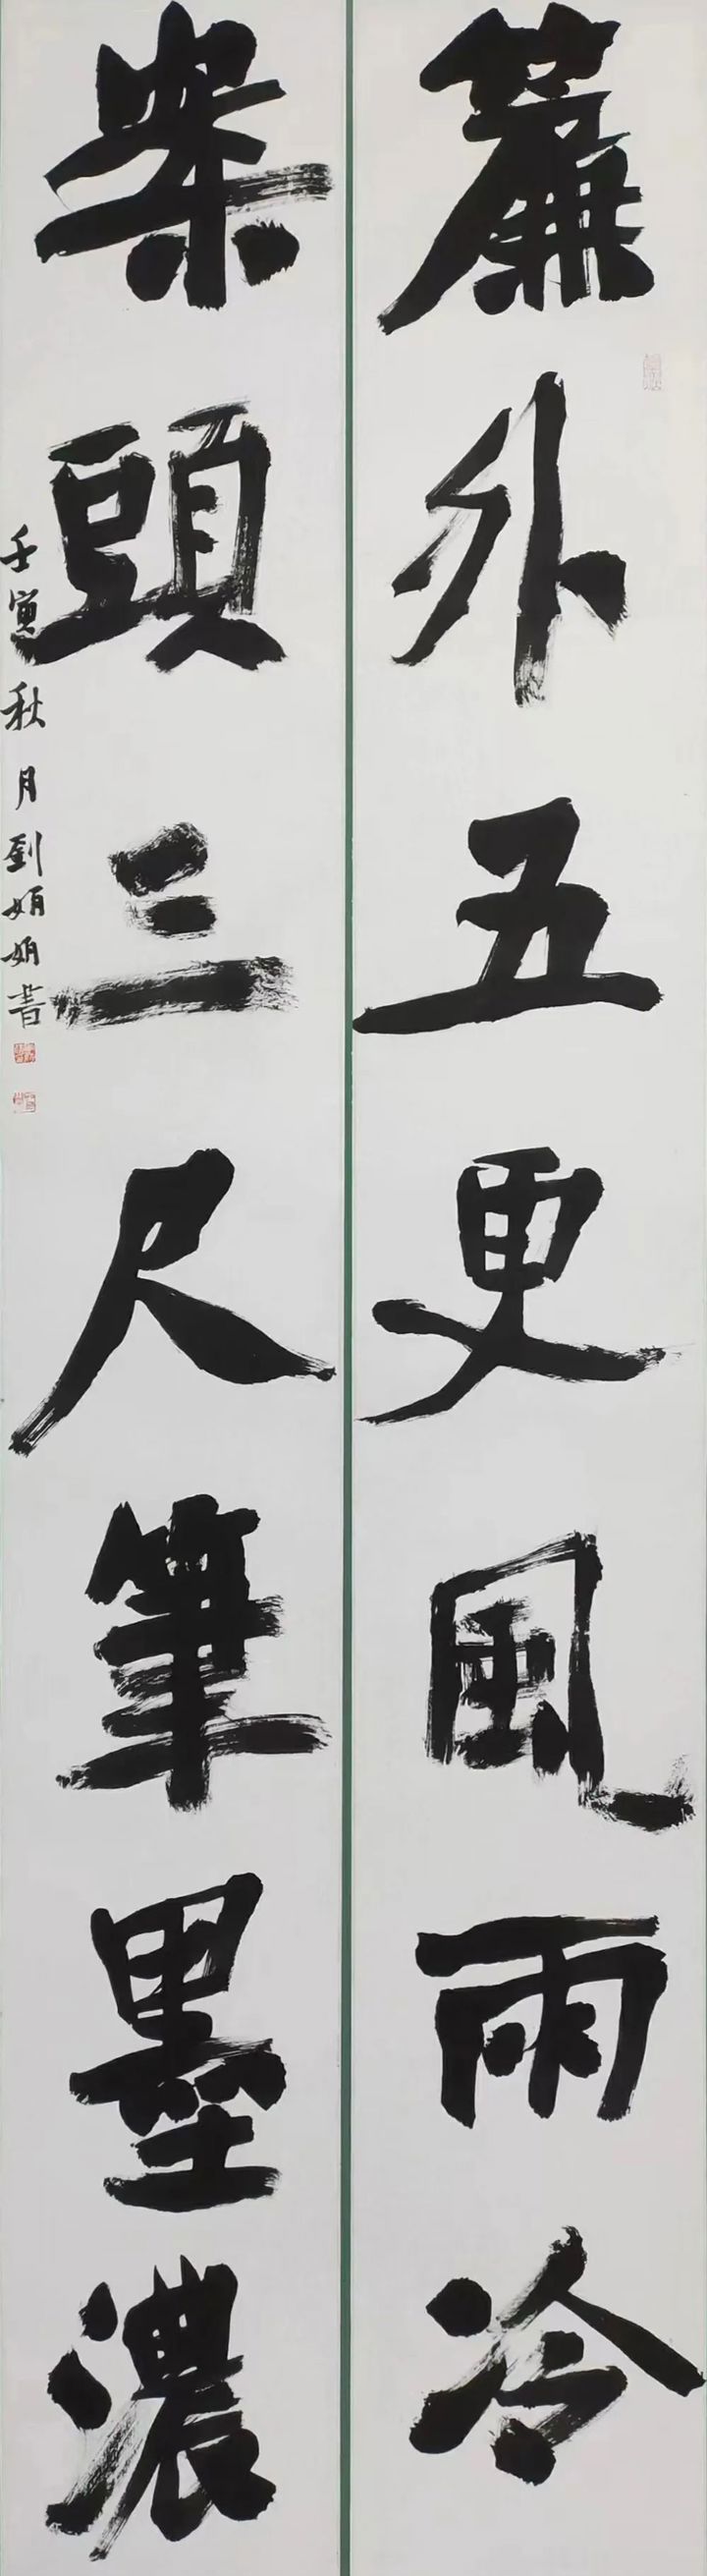 簾外五更風雨冷
案頭三尺筆墨濃
壬寅秋月劉娟娟書